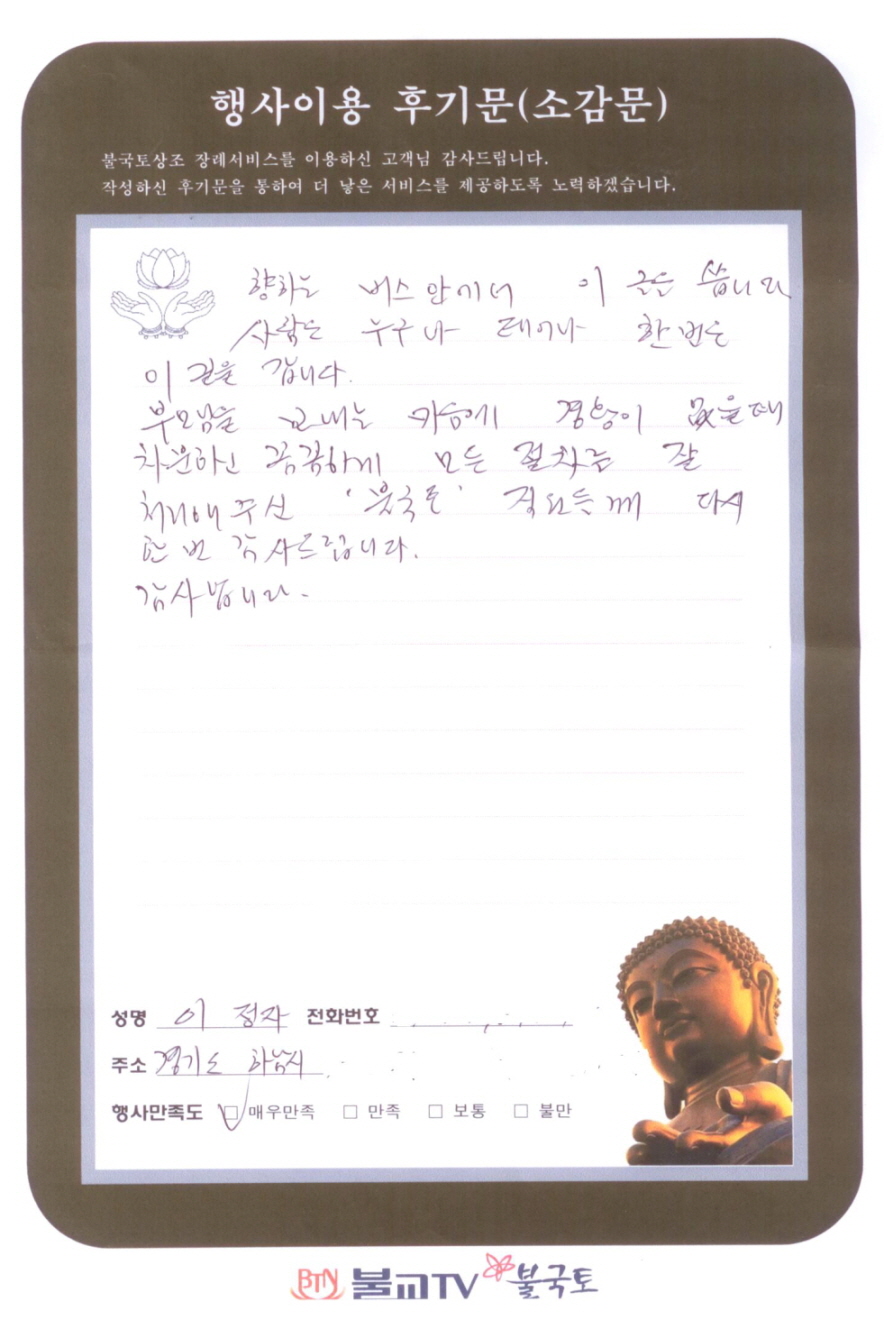 행사이용 후기문(소감문)
불국토상조 장례서비스를 이용하신 고객님 감사드립니다.
작성하신 후기문을 통하여 더 낳은 서비스를 제공하도록 노력하겠습니다.
향하는 버스 안에서 이 글을 씁니다
사람은 누구나 태어나 한번은
이 길을 갑니다.
부모님을 보내는 가슴에 경황이 없을때
차분하신 꼼꼼하게 모든 절차를 잘
처리해 주신 '불국토' 직원들께 다시
한 번 감사드립니다.
감사합니다.
성명 이 정자 전화번호
주소 경기도 하남시
행사만족도 ☑ 매우만족 □ 만족 □ 보통 □ 불만
BTN 불교TV 불국토